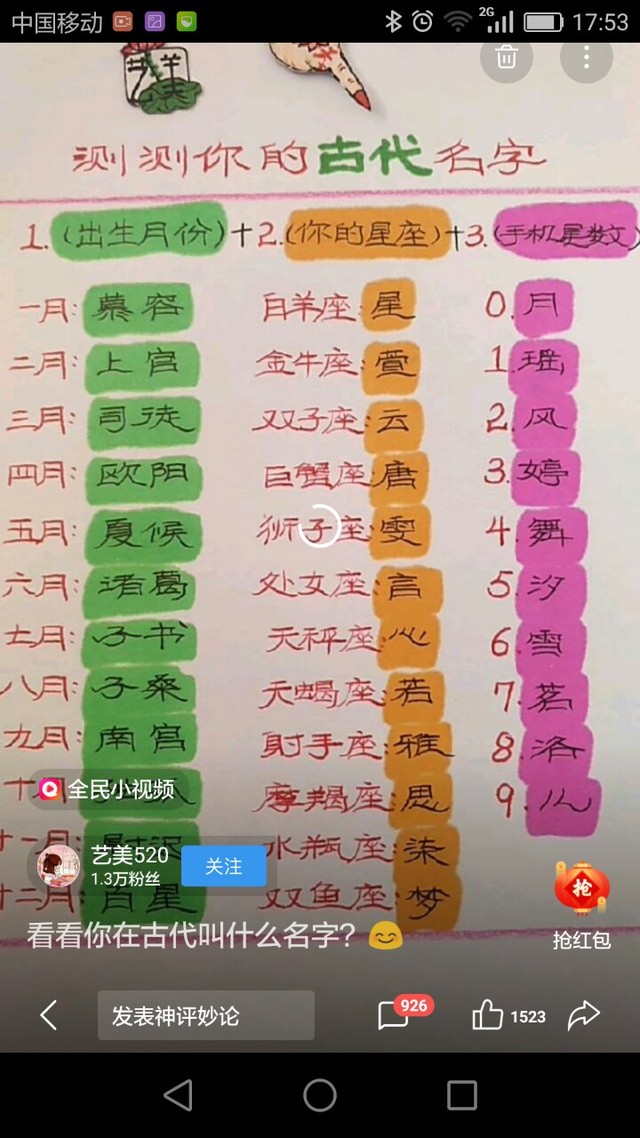 中国移动 2G 17:53
艺美
测测你的古代名字
1.(出生月份)+2.(你的星座)+3.(手机尾数)
一月:慕容 白羊座:星 0.月
二月:上官 金牛座:萱 1.瑶
三月:司徒 双子座:云 2.风
四月:欧阳 巨蟹座:唐 3.婷
五月:夏候 狮子座:雯 4.舞
六月:诸葛 处女座:言 5.汐
七月:子书 天秤座:心 6.雪
八月:子桑 天蝎座:若 7.茗
九月:南宫 射手座:雅 8.洛
十月 摩羯座:思 9.儿
全民小视频
十一月: 水瓶座:柒
艺美520
1.3万粉丝
关注
十二月:百星 双鱼座:梦
抢
看看你在古代叫什么名字?😊
抢红包
发表神评妙论 926 1523